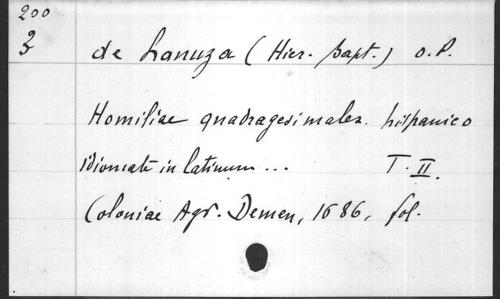 200
3
de Lanuza (Hier. bapt.) O.P.
Homiliae quadragesimales hispanico
idiomate in latinum ... T. II.
Coloniae Agr. Demen, 1686, fol.